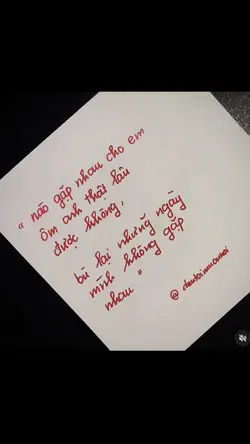 “ nào gặp nhau cho em
ôm anh thật lâu
được không,
bù lại những ngày
mình không gặp
nhau ”